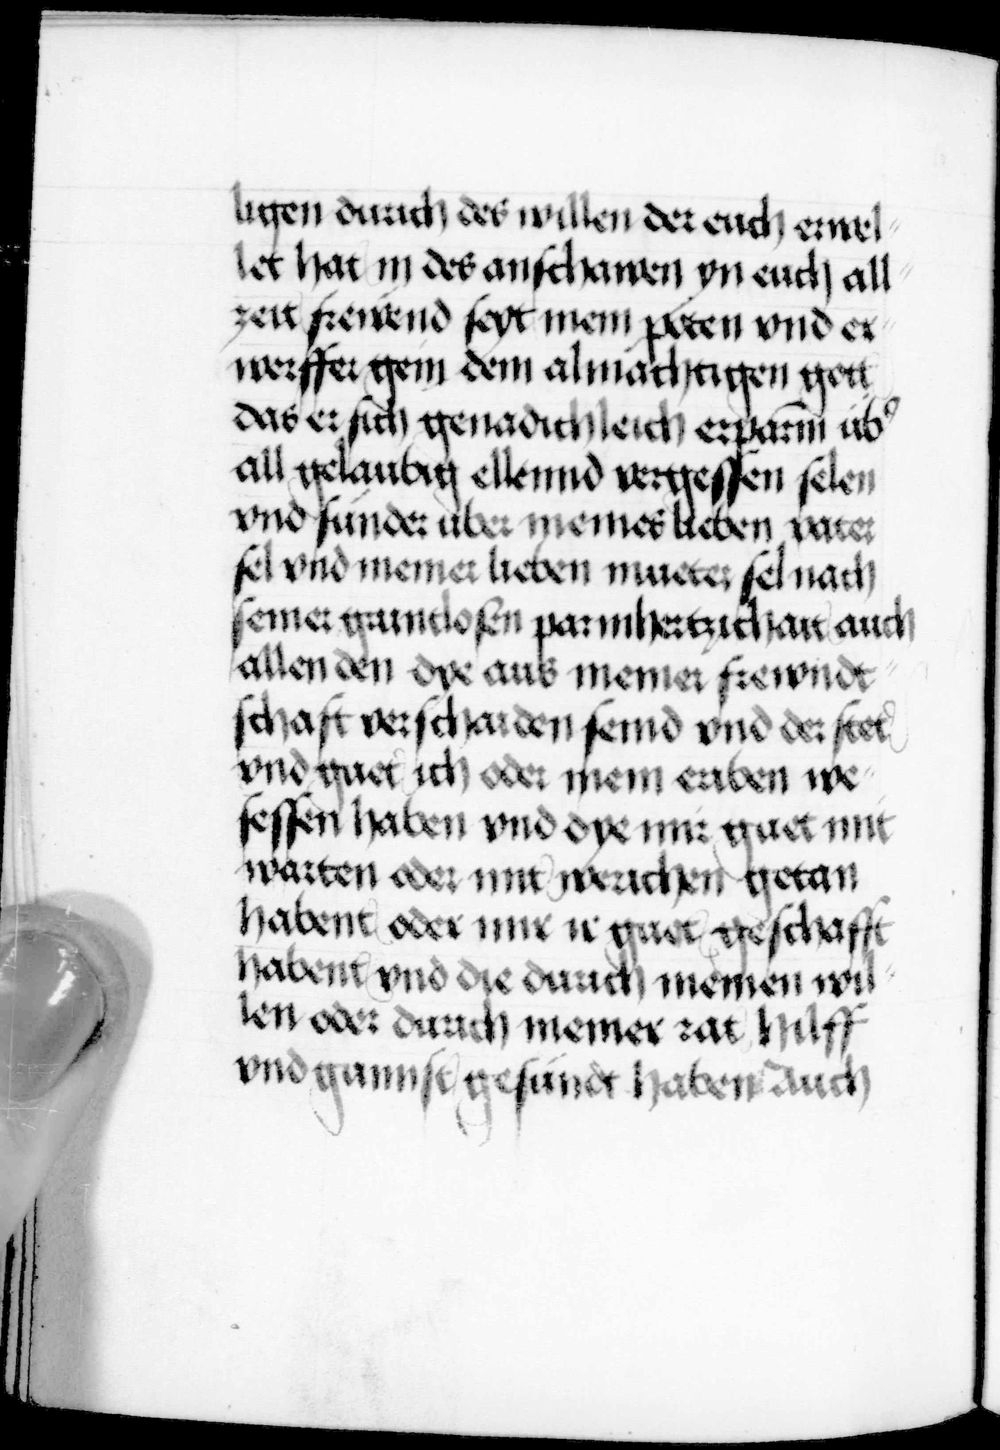 ligen durich des willen der euch erwel⸗
let hat in des anschawen yn euch all⸗
zeit frewend seyt mein peten vnd er
werffer gein dem almächtigen gott
das er sich genadichleich erparm üb᾽
all gelaubig ellennd vergessen selen
vnd sünder über meines lieben vater
sel vnd meiner lieben mueter sel nach
seiner gruntlosen parmhertzichait auch
allen den dye aus meiner frewndt⸗
schaft verschaiden seind vnd der stet
vnd guet ich oder mein eriben we⸗
sessen haben vnd dye mir guet mit
warten oder mit werichen getan
habent oder mir ir guet geschafft
habent vnd die durich meinen wil⸗
len oder durich meiner rat hilff
vnd gunnst gesündt haben Auch